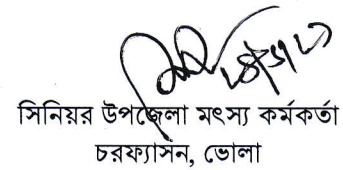 সিনিয়র উপজেলা মৎস্য কর্মকর্তা
চরফ্যাসন, ভোলা